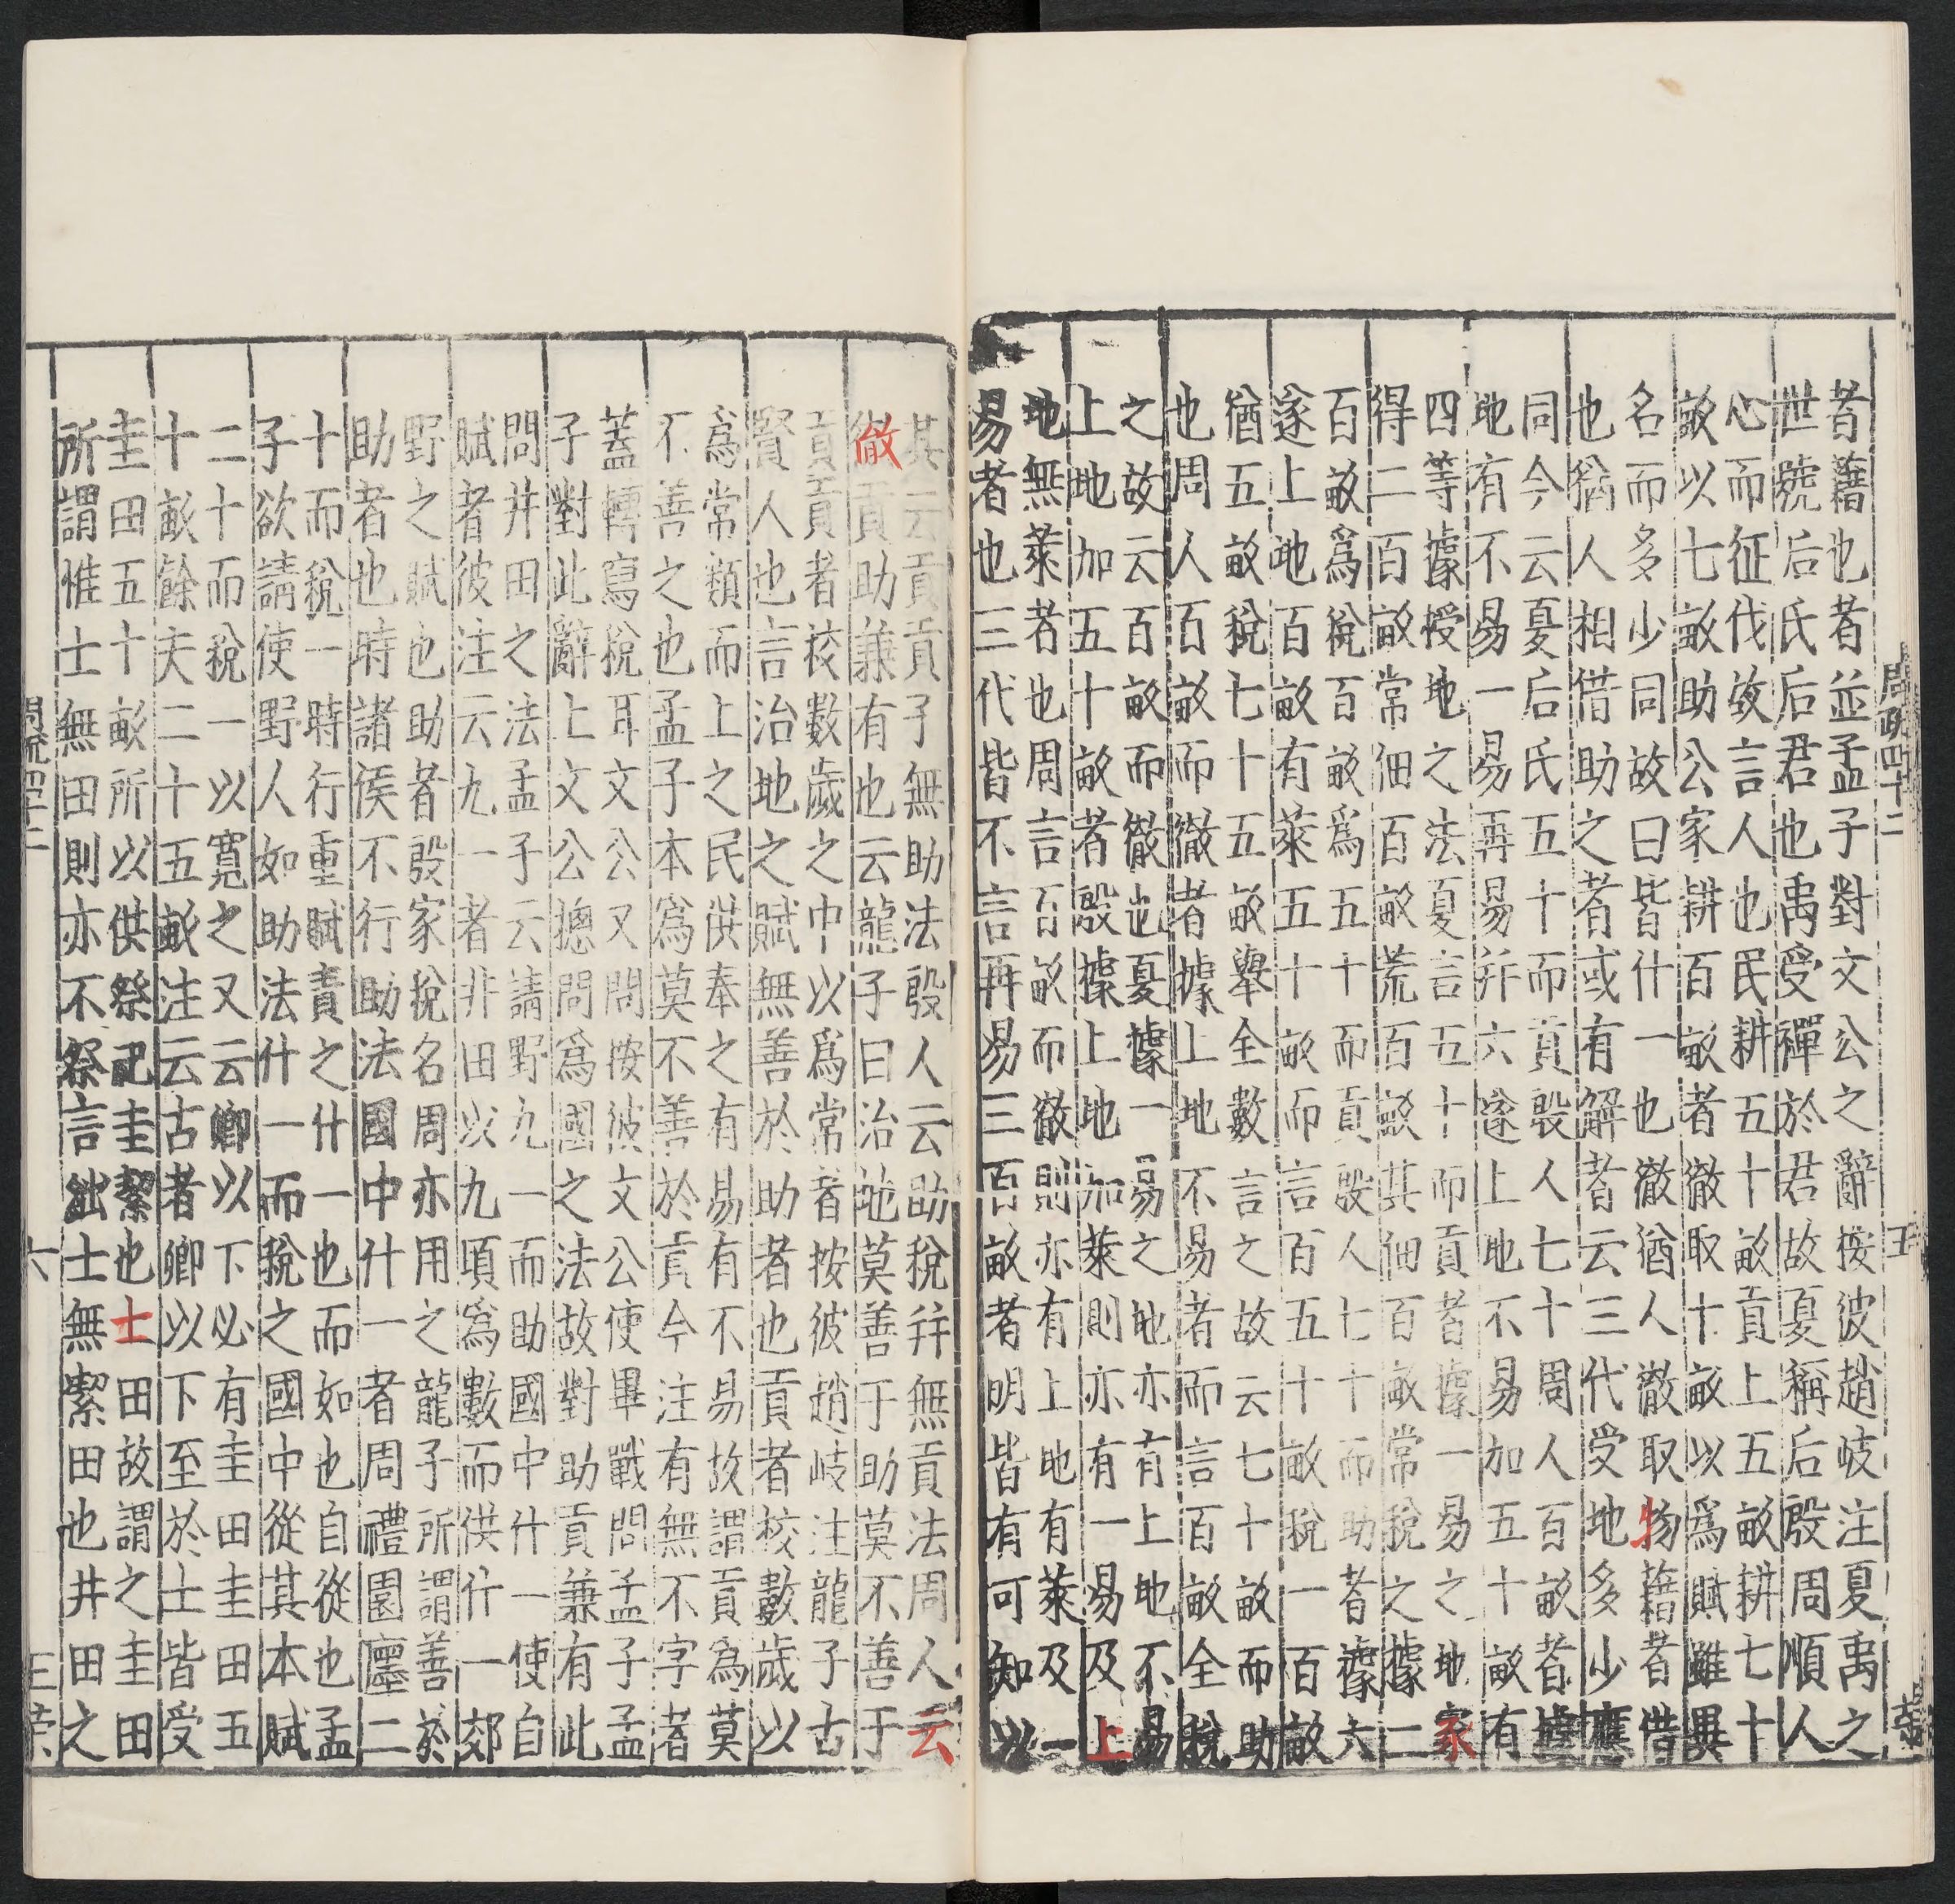 者藉也者並孟子對文公之辭按彼趙岐注夏禹之
世號后氏后君也禹受禪於君故夏稱后殷周順人
心而征伐故言人也民耕五十畝貢上五畝耕七十
畝以七畝助公家耕百畝者徹取十畝以爲賦雖異
名而多少同故曰皆什一也徹猶人徹取物藉者借
也猶人相借助之者或有解者云三代受地多少應
同今云夏后氏五十而貢殷人七十周人百畝者據
地有不易一易再易并六遂上地不易加五十畝有
四等據授地之法夏言五十而貢者據一易之地家
得二百畝常佃百畝荒百畝其佃百畝常稅之據二
百畝爲稅百畝爲五十而貢殷人七十而助者據六
遂上地百畝有萊五十畝而言百五十畝稅一百畝
猶五畝稅七十五畝舉全數言之故云七十畝而助
也周人百畝而徹者據上地不易者而言百畝全稅
之故云百畝而徹也夏據一易之地亦有上地不易
上地加五十畝者殷據上地加萊則亦有一易及上
地無萊者也周言百畝而徹則亦有上地有萊及一
易者也三代皆不言再易三百畝者明皆有可知以
周疏四十二
五
其云貢貢子無助法殷人云助稅幷無貢法周人云
徹貢助兼有也云龍子曰治地莫善于助莫不善于
貢貢者校數歲之中以爲常者按彼趙岐注龍子古
賢人也言治地之賦無善於助者也貢者校數歲以
爲常類而上之民供奉之有易有不易故謂貢爲莫
不善之也孟子本爲莫不善於貢今注有無不字者
蓋轉寫稅耳文公又問按彼文公使畢戰問孟子孟
子對此辭上文公摠問爲國之法故對助貢兼有此
問井田之法孟子云請野九一而助國中什一使自
賦者彼注云九一者非田以九頃爲數而供什一郊
野之賦也助者殷家稅名周亦用之龍子所謂善於
助者也時諸侯不行助法國中什一者周禮園廛二
十而稅一時行重賦責之什一也而如也自從也孟
子欲請使野人如助法什一而稅之國中從其本賦
二十而稅一以寬之又云卿以下必有圭田圭田五
十畝餘夫二十五畝注云古者卿以下至於士皆受
圭田五十畝所以供祭祀圭絜也士田故謂之圭田
所謂惟士無田則亦不祭言絀士無絜田也井田之
周疏四十二
六
王榮